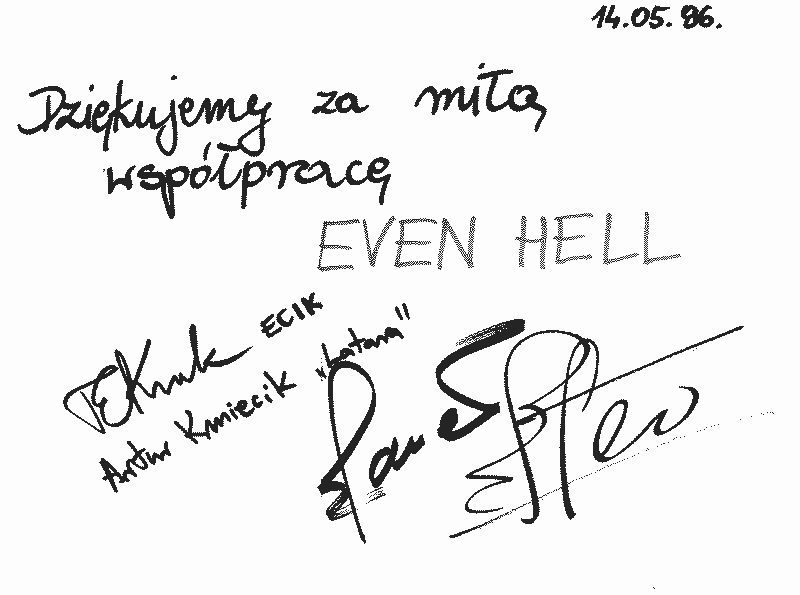 14.05.96.
Dziękujemy za miłą
współpracę
EVEN HELL
ECIK
Artur Kmiecik „Latara"